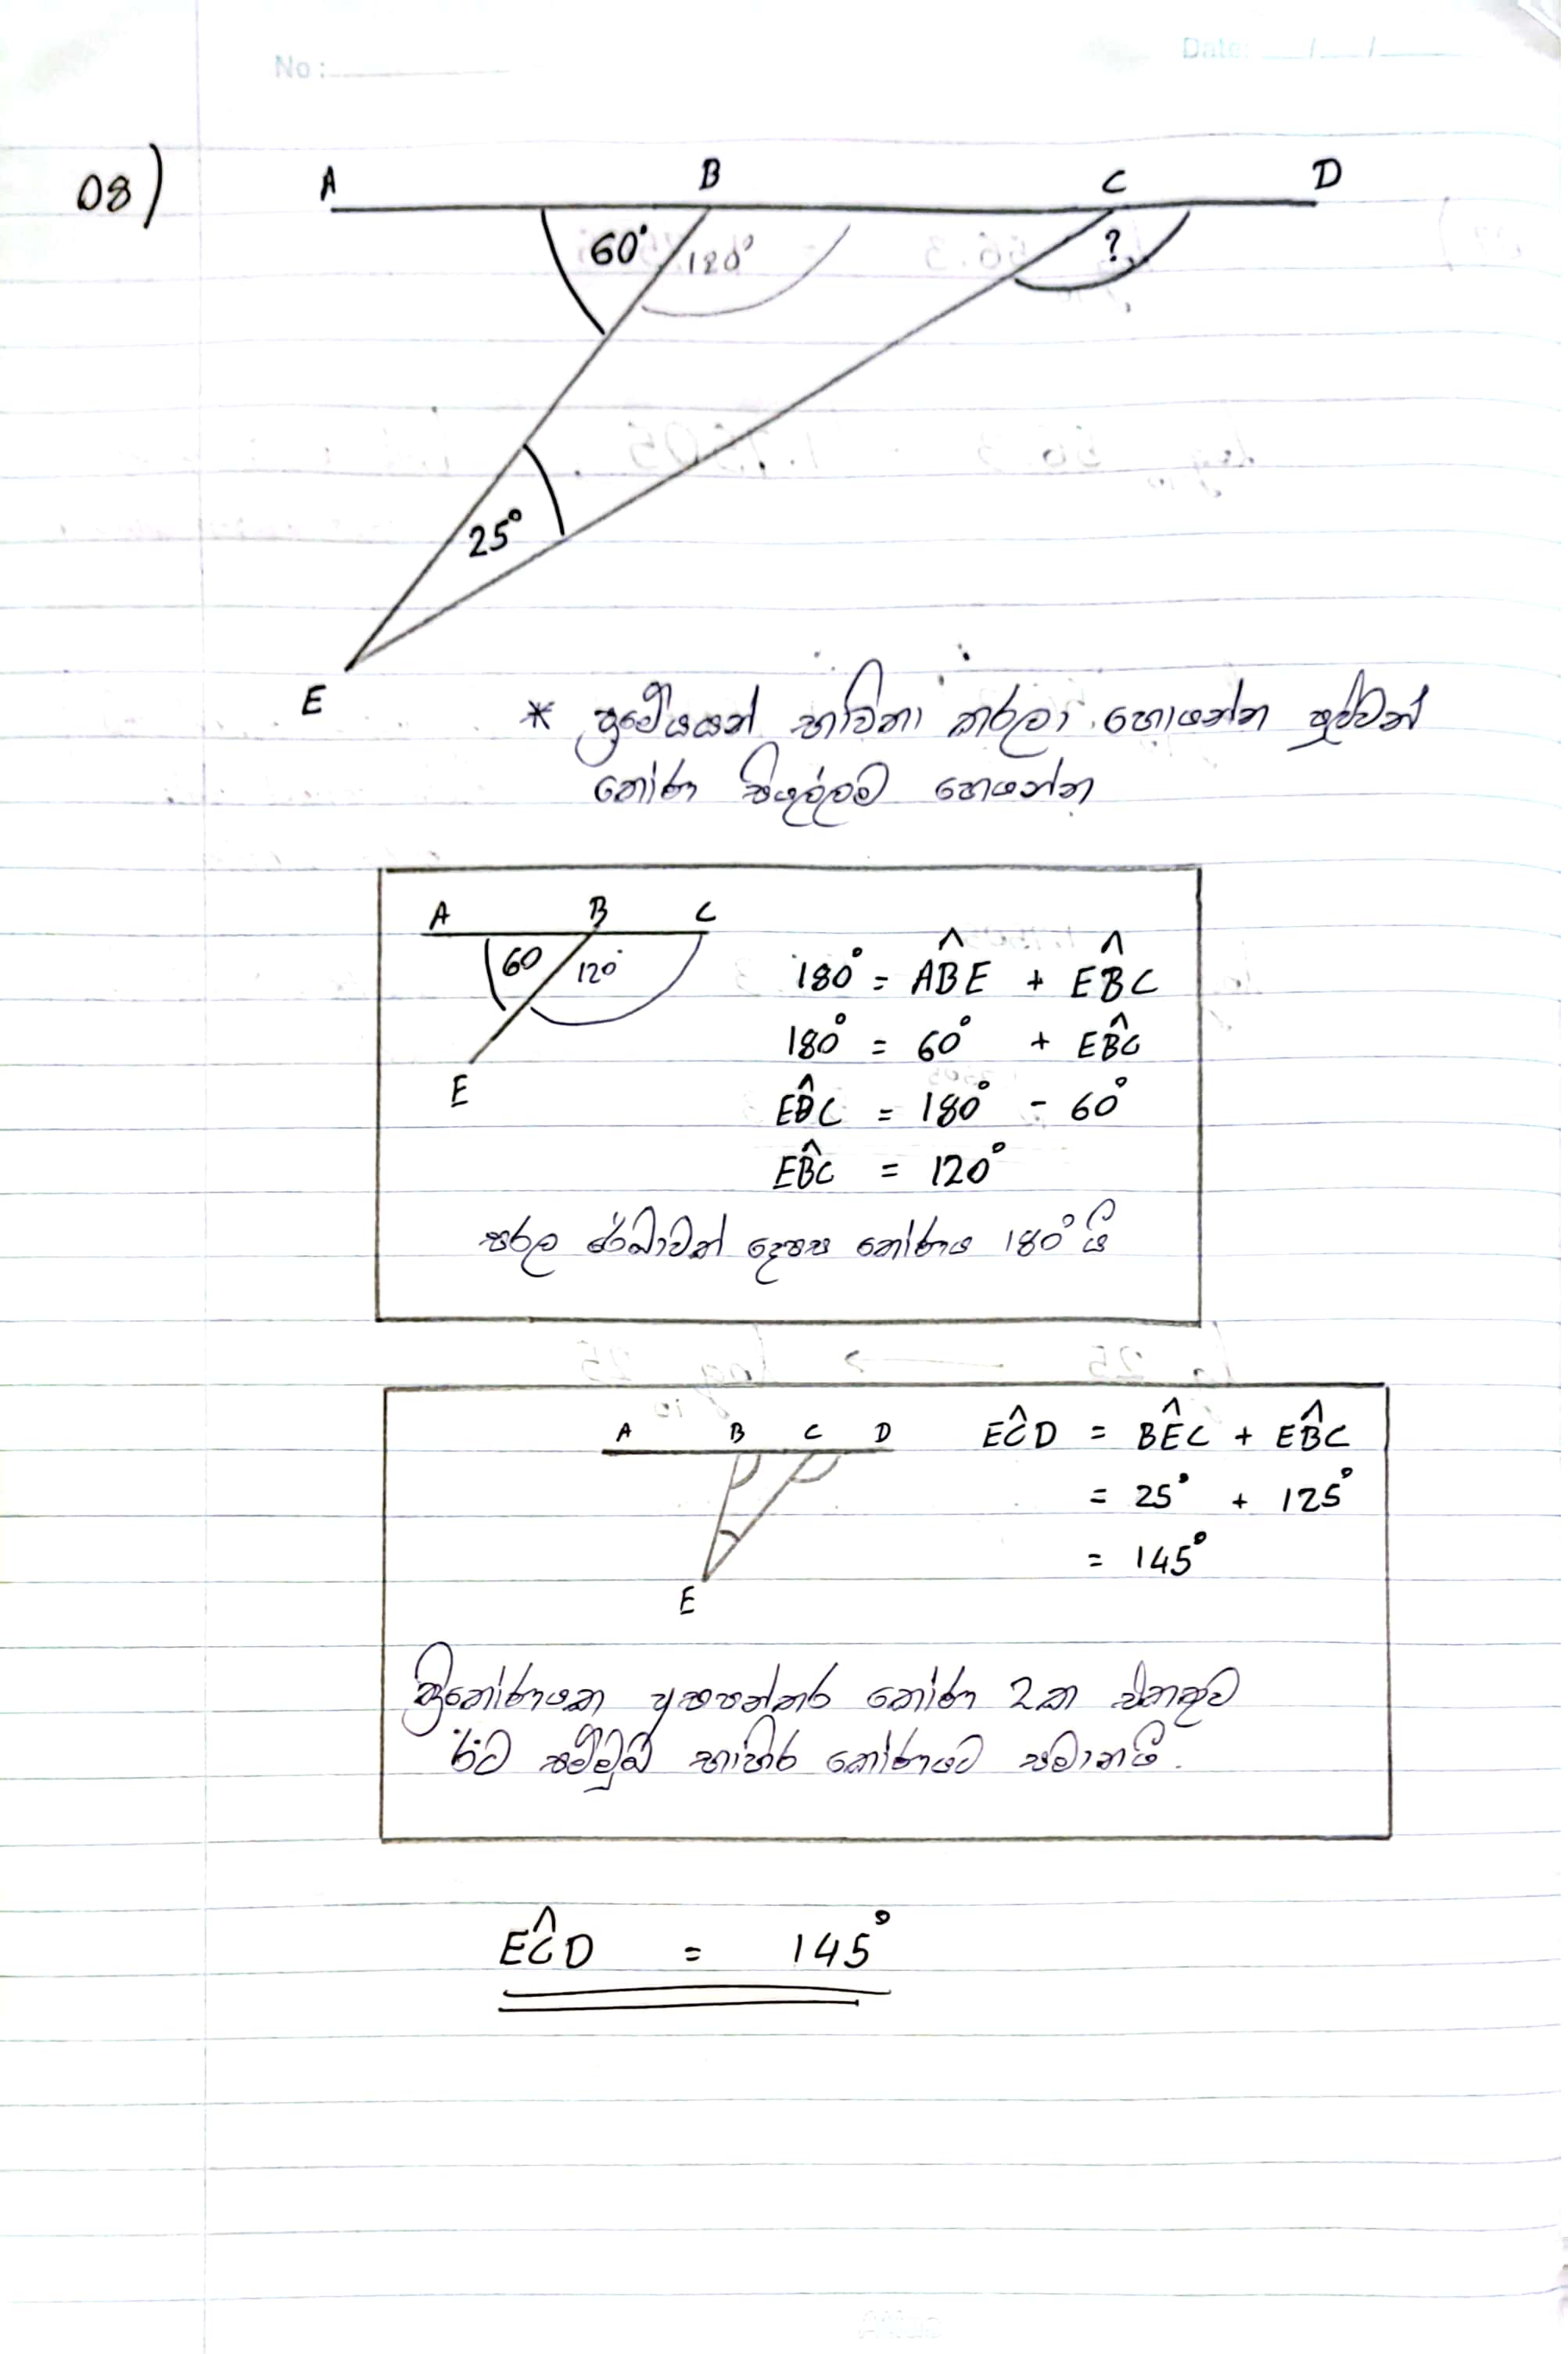 No :
Date: / /
08)
A B C D
60° 120° ?
25°
E
* ප්‍රමේයයන් භාවිතා කරලා හොයන්න පුළුවන්
කෝණ සියල්ලම හොයන්න
A B C
60 120°
E
180° = AB̂E + EB̂C
180° = 60° + EB̂C
EB̂C = 180° - 60°
EB̂C = 120°
සරල රේඛාවක් දෙපස කෝණය 180° යි
A B C D
E
EĈD = BÊC + EB̂C
= 25° + 125°
= 145°
ත්‍රිකෝණයක අභ්‍යන්තර කෝණ 2ක එකතුව
ඊට සම්මුඛ භාහිර කෝණයට සමානයි.
EĈD = 145°